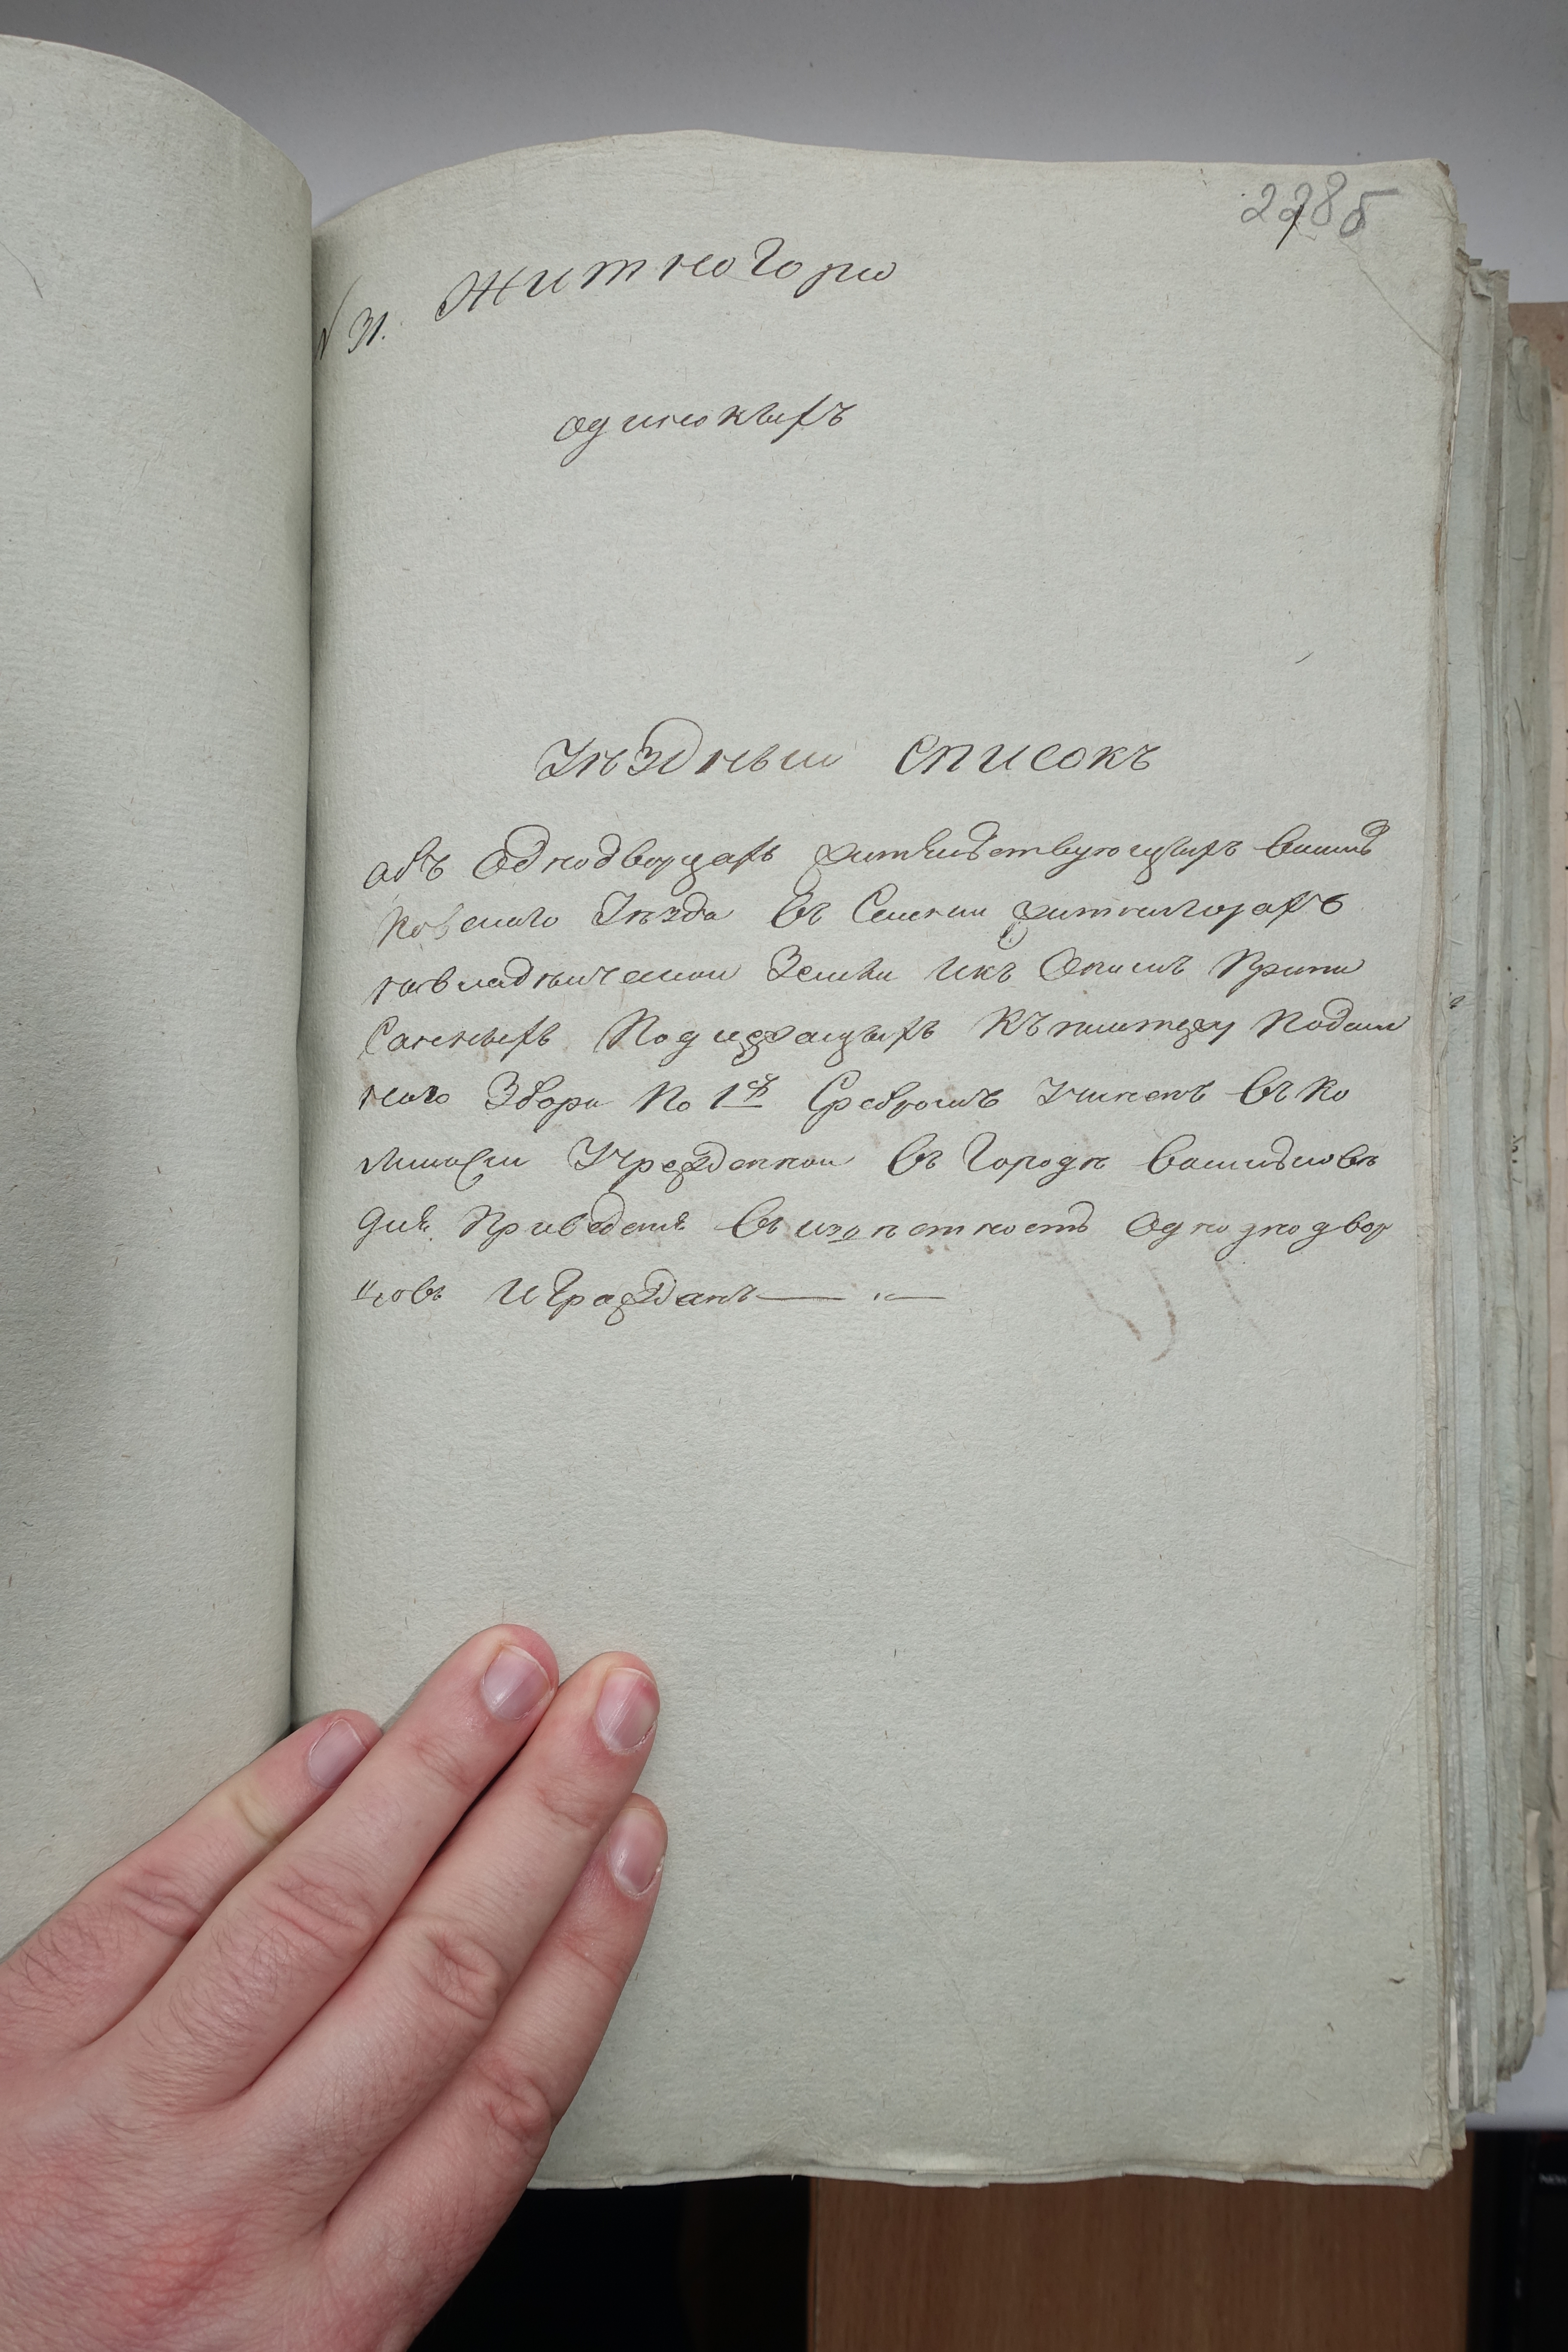 2285
№ 31. Житногори
одинокыхъ
Уѣздныи списокъ
объ Однодворцахъ жительствующихъ Василь
ковскаго Уѣзда въ Селении Житнигорахъ
на владѣлческои Земли и къ Онымъ Припи
санныхъ Подлежащыхъ Къ платежу Подым
наго Збора По 1 Сребромъ Учиненъ въ Ко
мысыи Учрежденнои въ Городѣ Василковѣ
для Приведения въ изъвѣстность Однодвор
цовъ и Гражданъ